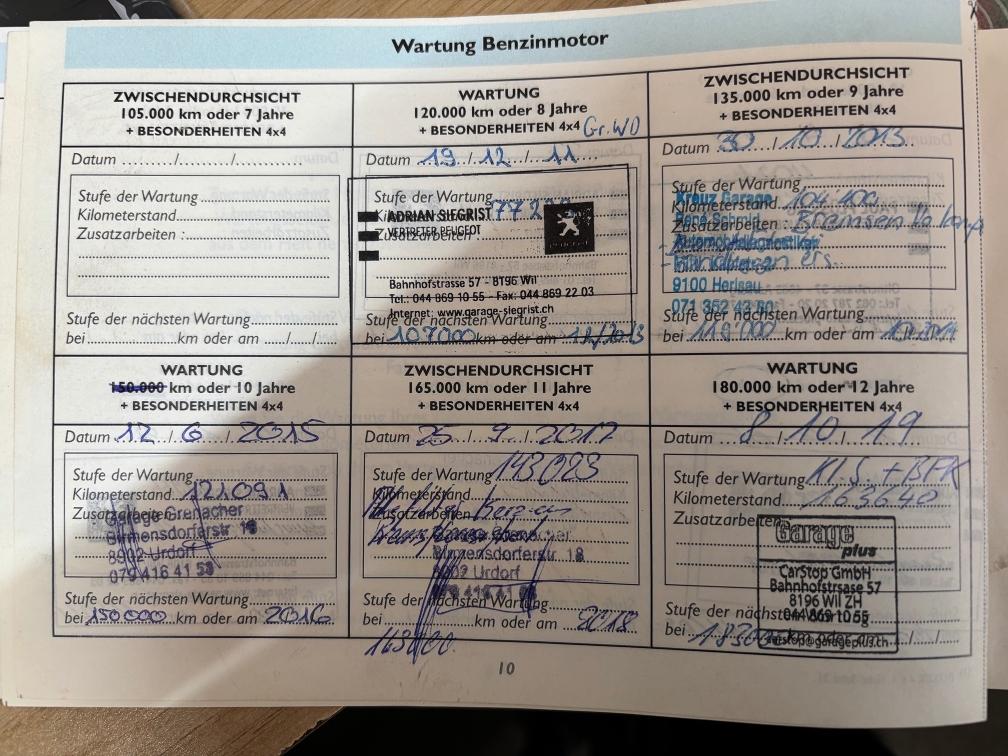 Wartung Benzinmotor
ZWISCHENDURCHSICHT
105.000 km oder 7 Jahre
+ BESONDERHEITEN 4x4
Datum ....../....../......
Stufe der Wartung
Kilometerstand
Zusatzarbeiten :
Stufe der nächsten Wartung
bei ...... km oder am ....../....../......
WARTUNG
120.000 km oder 8 Jahre
+ BESONDERHEITEN 4x4 Gr. WD
Datum 19 / 12 / 11
Stufe der Wartung
ADRIAN SIEGRIST
VERTRETER PEUGEOT
Zusatzarbeiten
Bahnhofstrasse 57 - 8196 Wil
Tel.: 044 869 10 55 - Fax: 044 869 22 03
Internet: www.garage-siegrist.ch
Stufe der nächsten Wartung
bei 107000 km oder am 12/2013
ZWISCHENDURCHSICHT
135.000 km oder 9 Jahre
+ BESONDERHEITEN 4x4
Datum 30 / 10 / 2013
Stufe der Wartung
Kreuz Garage
Kilometerstand 104'100
René Schmid
Zusatzarbeiten: Bremsen
Automobildiagnostiker
9100 Herisau
071 352
Stufe der nächsten Wartung
bei 119'000 km oder am
WARTUNG
150.000 km oder 10 Jahre
+ BESONDERHEITEN 4x4
Datum 12 / 6 / 2015
Stufe der Wartung
Kilometerstand 121091
Zusatzarbeiten
Garage Grenacher
Birmensdorferstr. 18
8902 Urdorf
079 416 41 58
Stufe der nächsten Wartung
bei 150000 km oder am 2016
ZWISCHENDURCHSICHT
165.000 km oder 11 Jahre
+ BESONDERHEITEN 4x4
Datum 25 / 9 / 2017
Stufe der Wartung 143023
Kilometerstand
Zusatzarbeiten
Birmensdorferstr. 18
8902 Urdorf
Stufe der nächsten Wartung
bei ...... km oder am 2018
163000
WARTUNG
180.000 km oder 12 Jahre
+ BESONDERHEITEN 4x4
Datum 8 / 10 / 19
Stufe der Wartung Kl.S + BFK
Kilometerstand 163640
Zusatzarbeiten
Garage
plus
CarStop GmbH
Bahnhofstrasse 57
8196 Wil ZH
044 869 10 55
Stufe der nächsten
carstop@garageplus.ch
bei 183000 km oder am ....../....../......
10